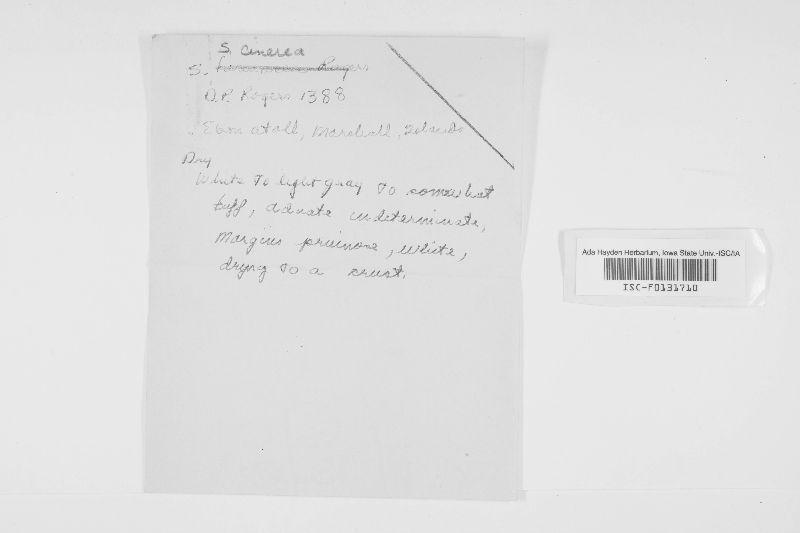 S. cinerea
S. Rogers
D.P. Rogers 1388
Ebon atoll, Marshall, Islands
Dry
White to light gray to somewhat
buff, adnate indeterminate,
margins pruinose, white,
drying to a crust.
Ada Hayden Herbarium, Iowa State Univ.-ISC/IA
ISC-F0131710